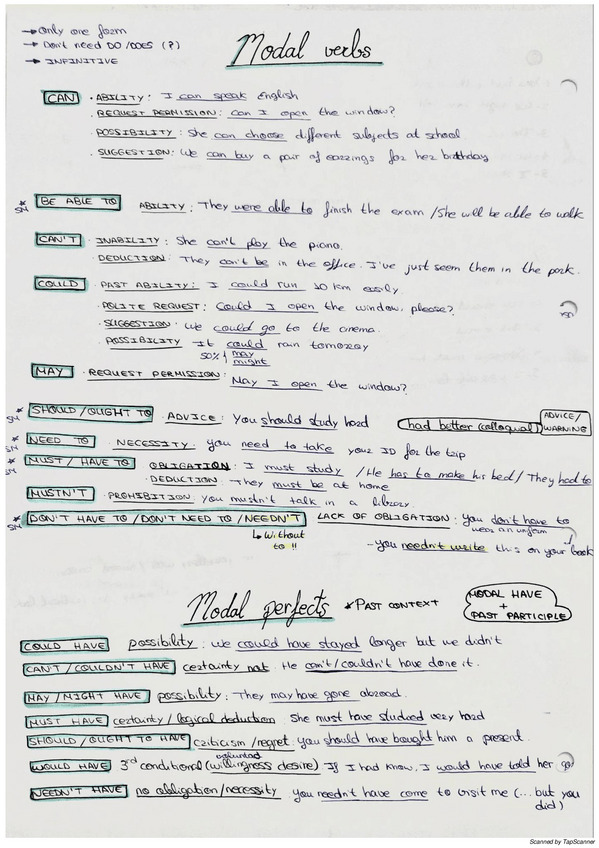 → Only one form
→ Don't need DO/DOES (?)
→ INFINITIVE
Modal verbs
CAN · ABILITY: I can speak English
· REQUEST PERMISSION: Can I open the window?
· POSSIBILITY: She can choose different subjects at school
· SUGGESTION: We can buy a pair of earrings for her birthday
BE ABLE TO ABILITY: They were able to finish the exam / She will be able to walk
CAN'T · INABILITY: She can't play the piano.
· DEDUCTION: They can't be in the office. I've just seem them in the park.
COULD · PAST ABILITY: I could run 10 km easily.
· POLITE REQUEST: Could I open the window, please?
· SUGGESTION: We could go to the cinema.
· POSSIBILITY It could rain tomorrow
50% may
might
MAY · REQUEST PERMISSION: May I open the window?
SHOULD/OUGHT TO · ADVICE: You should study hard had better (colloquial) ADVICE/
WARNING
NEED TO · NECESSITY: you need to take your ID for the trip
MUST / HAVE TO OBLIGATION: I must study / He has to make his bed / They had to
· DEDUCTION: They must be at home
MUSTN'T · PROHIBITION: you mustn't talk in a library.
DON'T HAVE TO / DON'T NEED TO / NEEDN'T LACK OF OBLIGATION: you don't have to
wear an uniform
↳ without
to !!
- you needn't write this on your book
Modal perfects * PAST CONTEXT
MODAL HAVE
+
PAST PARTICIPLE
COULD HAVE possibility: we could have stayed longer but we didn't
CAN'T / COULDN'T HAVE certainty not. He can't/couldn't have done it.
MAY / MIGHT HAVE possibility: They may have gone abroad.
MUST HAVE certainty / logical deduction She must have studied very hard
SHOULD / OUGHT TO HAVE criticism/regret. you should have bought him a present.
WOULD HAVE 3rd conditional (willingness desire) If I had know, I would have told her
NEEDN'T HAVE no obligation/necessity you needn't have come to visit me (... but you
did)
Scanned by TapScanner